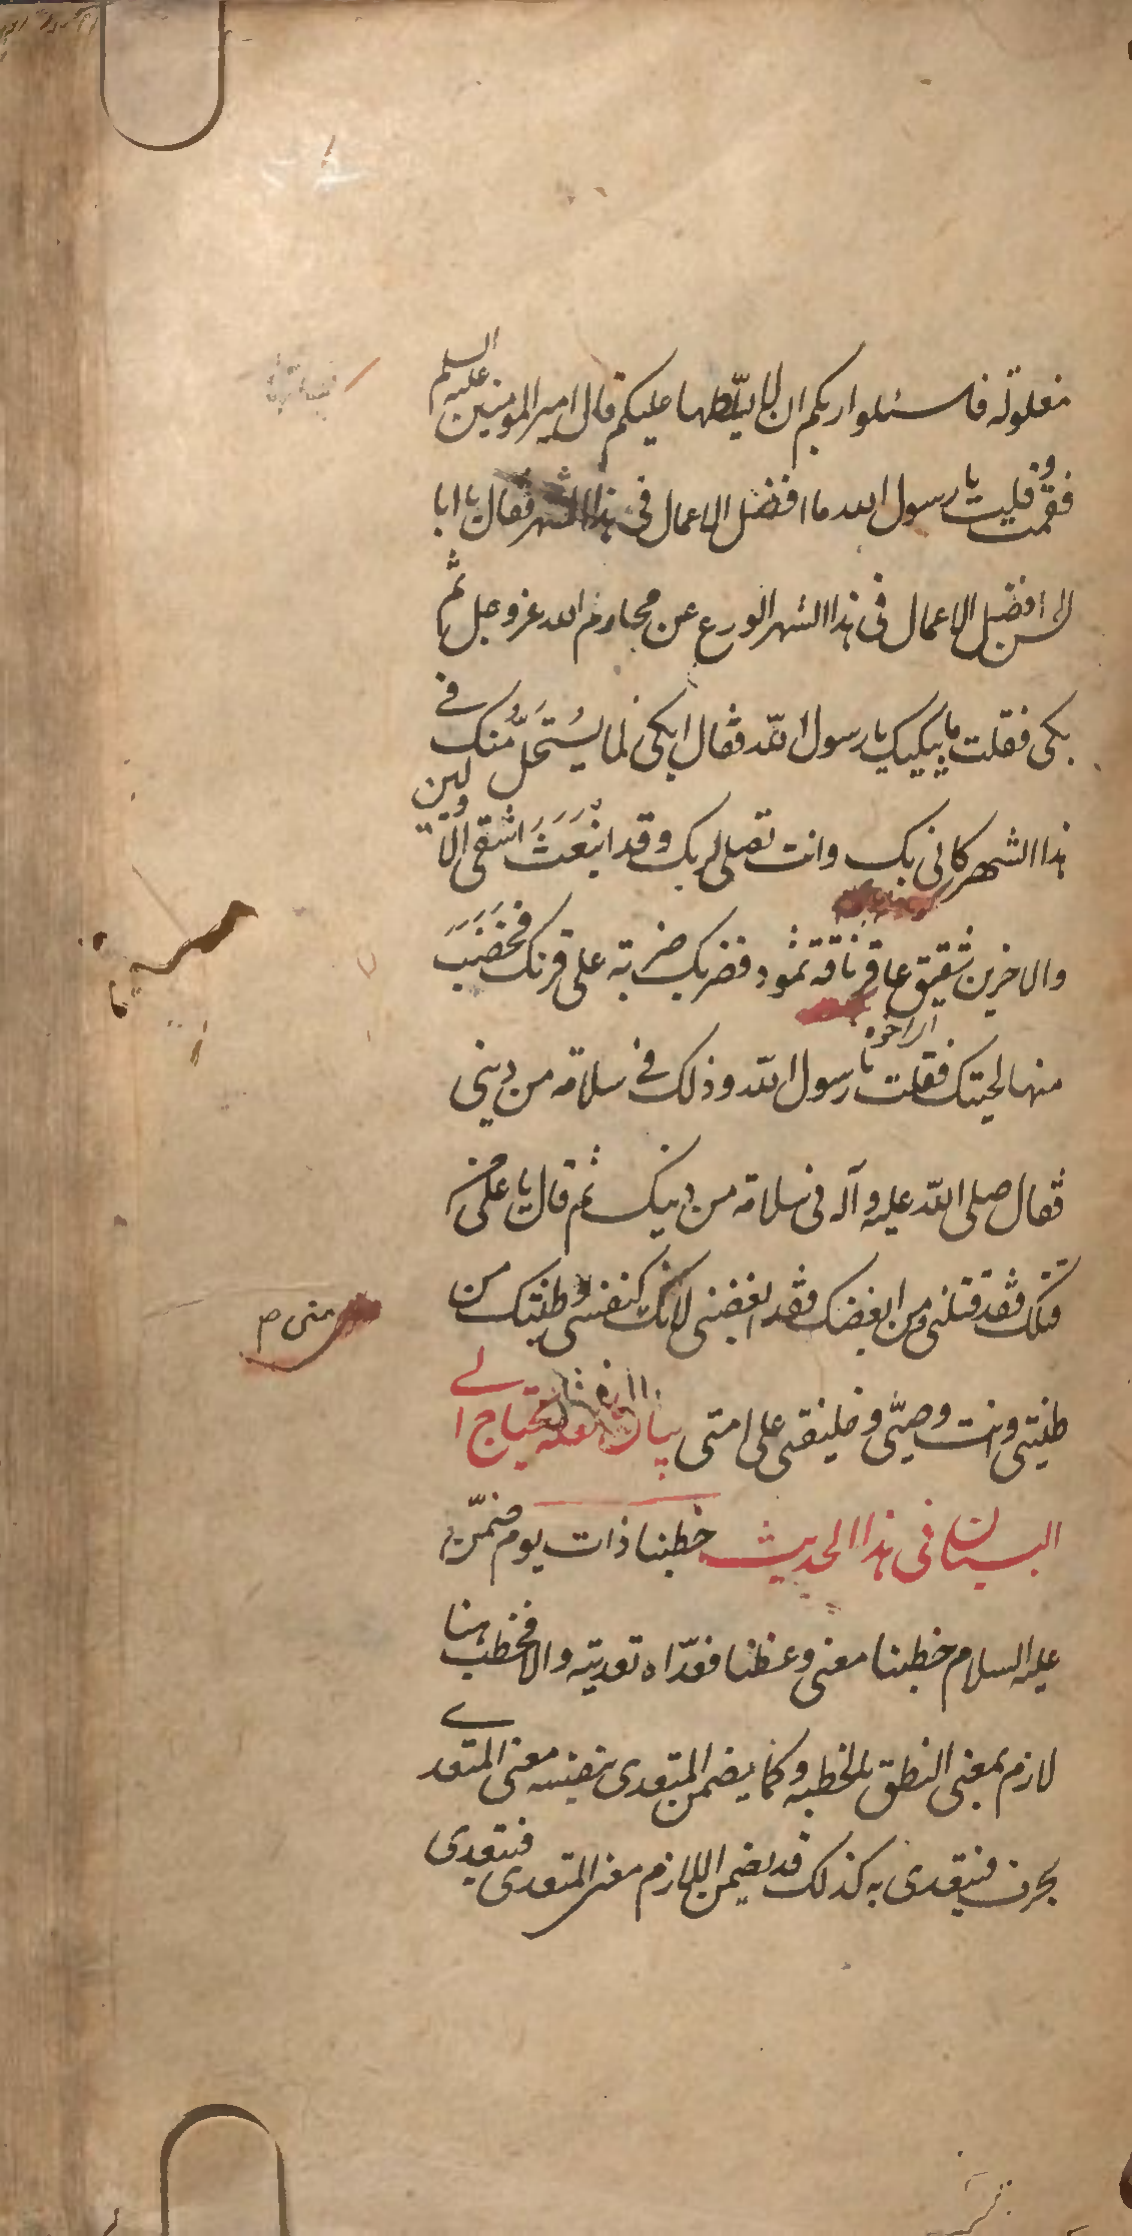 مغلولة فاسئلوا ربكم ان لا يسلطها عليكم قال امير المومنين عليه السلم
فقمت و قلت يا رسول الله ما افضل الاعمال فى هذا الشهر فقال يا ابا
الحسن افضل الاعمال فى هذا الشهر الورع عن محارم الله عز وجل ثم
بكى فقلت ما يبكيك يا رسول الله فقال ابكى لما يُستحَلُّ منك فى
هذا الشهر كانى بك وانت تصلى لربك وقد انْبَعَثَ اشقى الاولين
والاخرين شقيق عاقر ناقة ثمود فضربك ضربة على قرنك فَخَضَبَ
منها لحيتك فقلت يا رسول الله وذلك فى سلامة من دينى
فقال صلى الله عليه وآله فى سلامة من دينك ثم قال يا على من
قتلك فقد قتلنى ومن ابغضك فقد ابغضنى لانك كنفسى وطينتك من
منى ص
طينتى وانت وصيّى وخليفتى على امتى بيان ما لعله يحتاج الى
البيان فى هذا الحديث خطبنا ذات يوم ضمّن
عليه السلام خطبنا معنى وعظنا فعدّاه تعديته والا فخطب هنا
لازم بمعنى النطق بالخطبه وكما يضمن المتعدى بنفسه معنى المتعدى
بحرف فيتعدى به كذلك قد يضمن اللازم معنى المتعدى فيتعدى